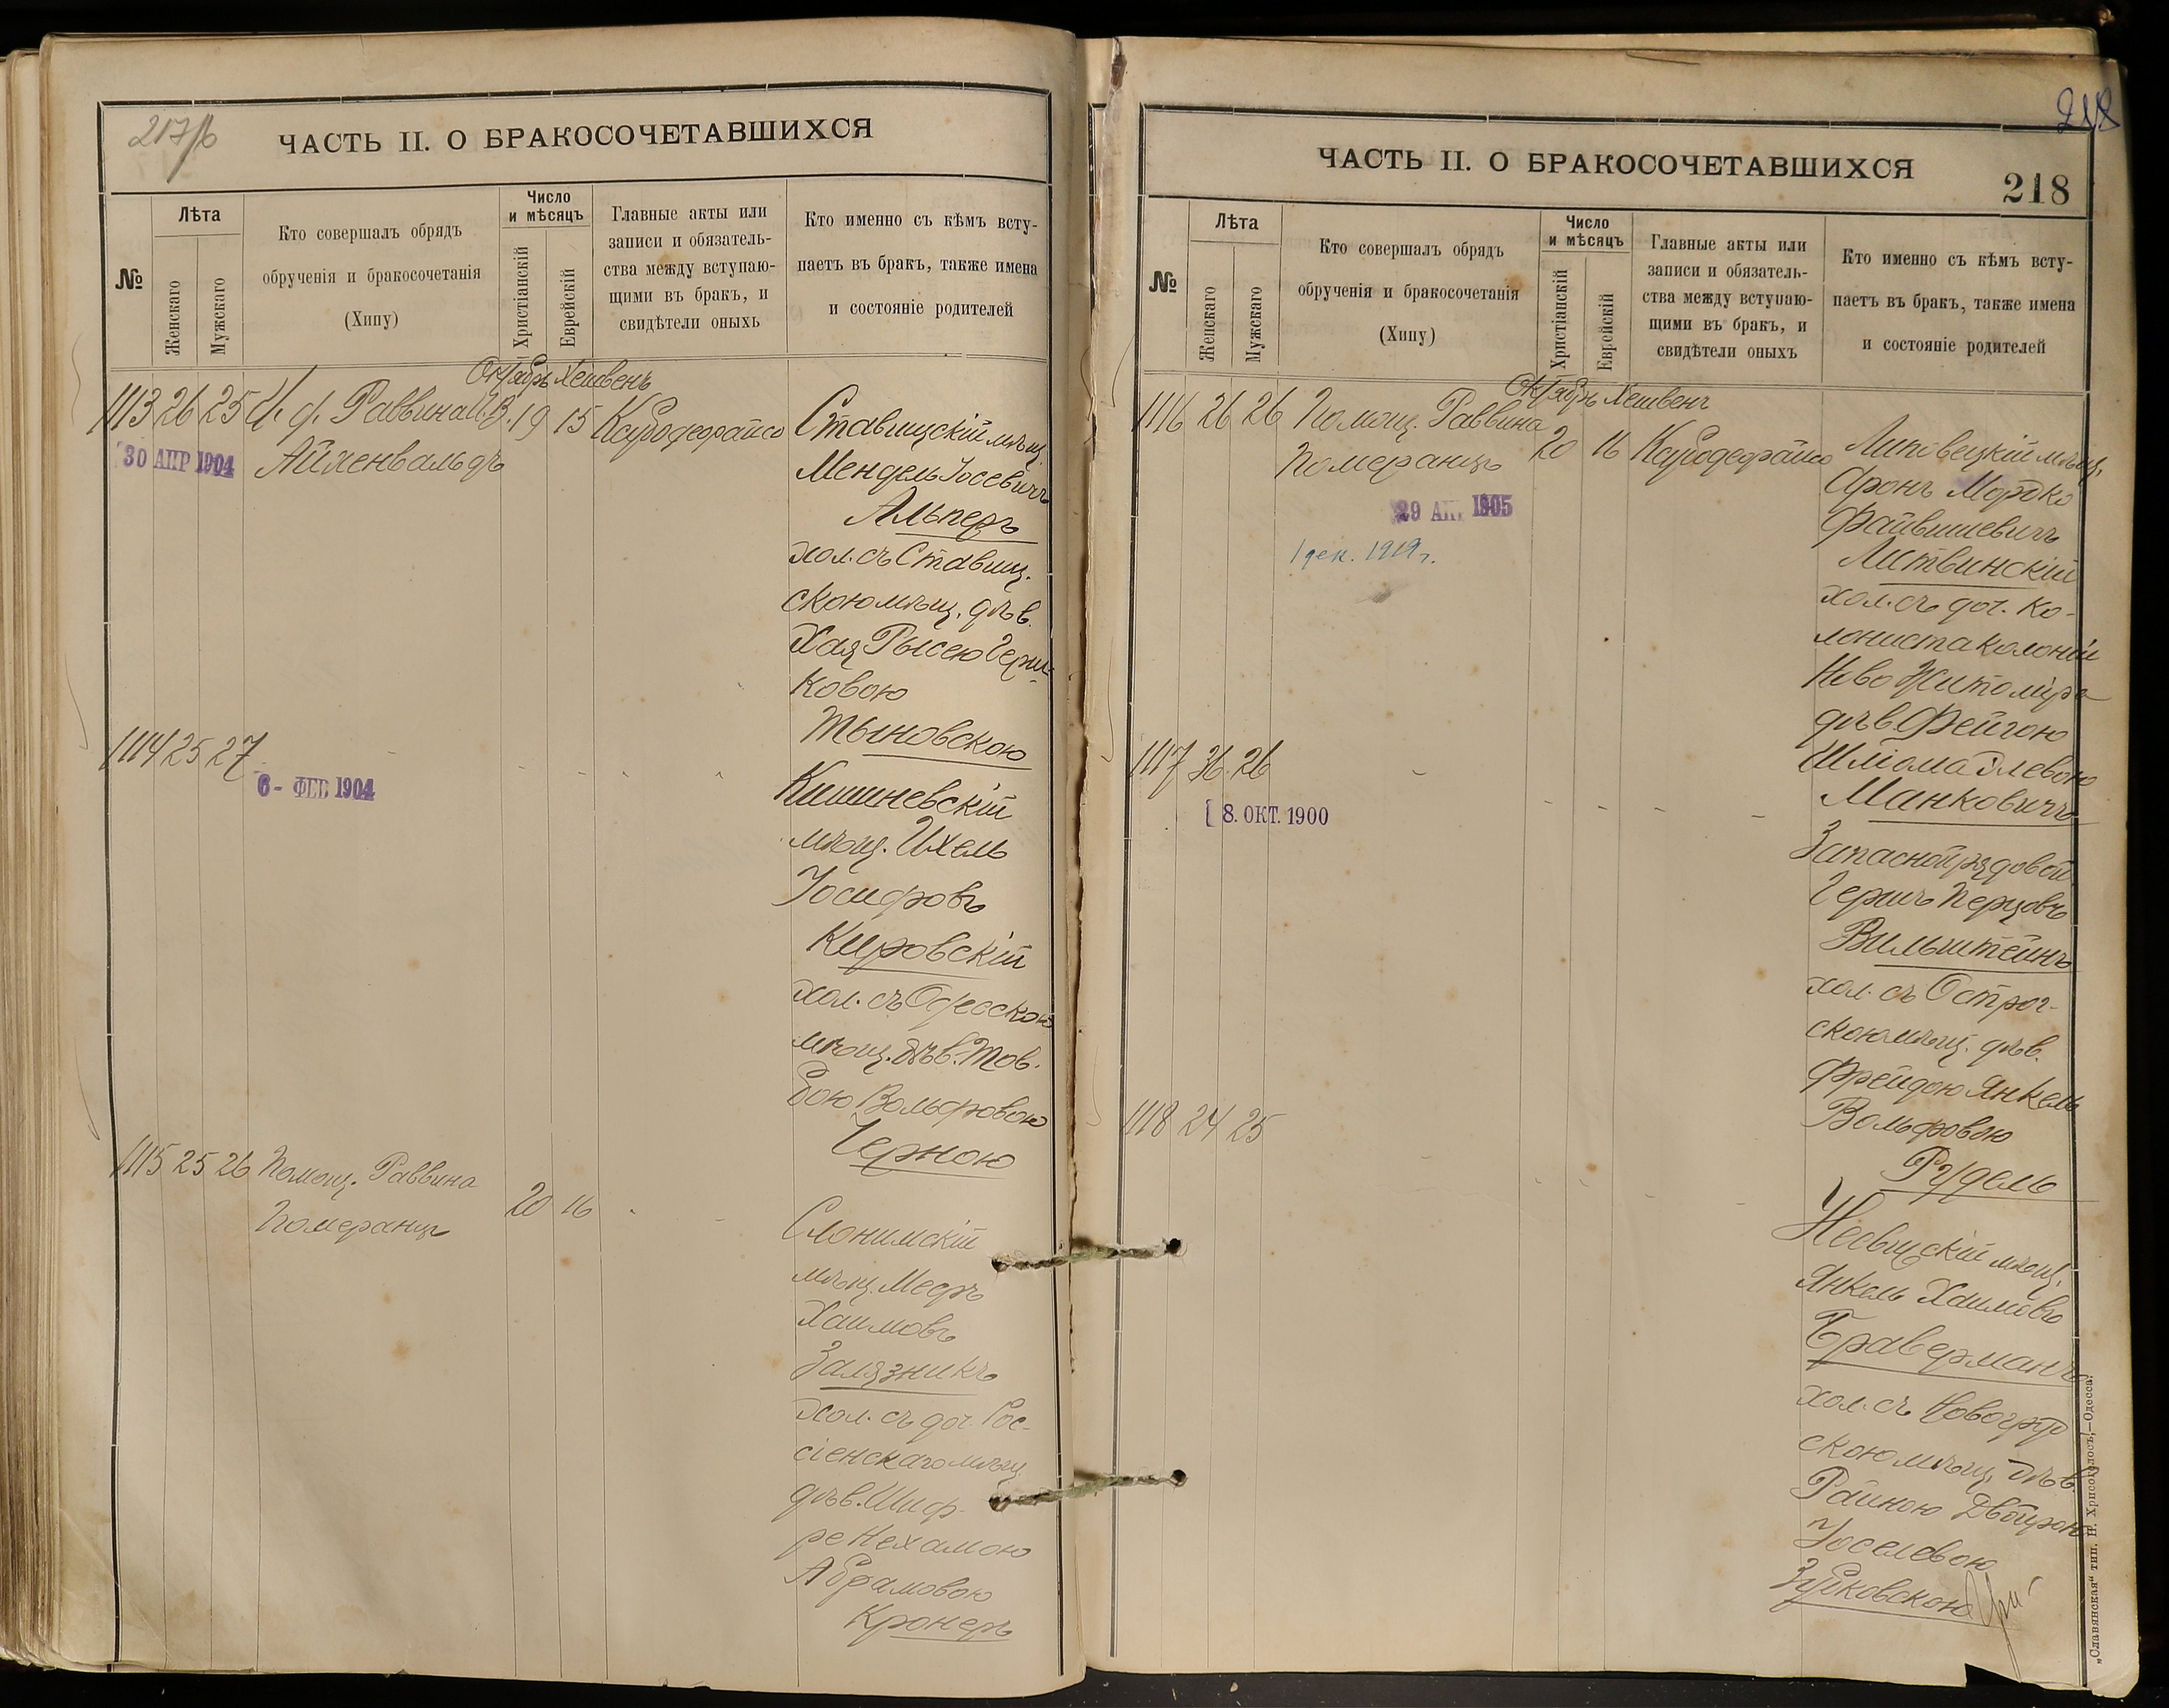 217/б
ЧАСТЬ II. О БРАКОСОЧЕТАВШИХСЯ
№
Лѣта
Женскаго
Мужскаго
Кто совершалъ обрядъ
обрученія и бракосочетанія
(Хипу)
Число
и мѣсяцъ
Христіанскій
Еврейскій
Главные акты или
записи и обязатель-
ства между вступаю-
щими въ бракъ, и
свидѣтели оныхь
Кто именно съ кѣмъ всту-
паетъ въ бракъ, также имена
и состояніе родителей
Октябрь Хешвенъ
1113 26 25 И. ф. Раввина 19 15
Айхенвальдъ
30 АПР 1904
Ставищскій мѣщ.
Мендель Іосевичъ
Альперъ
хол. съ Ставищ.
скою мѣщ. дѣв.
Хая Рысею Герш-
ковою
Тыновскою
1114 25 27
6- ФЕВ 1904
Кишиневскій
мѣщ. Ихель
Іосифовъ
Кировскій
хол. съ Одесскою
мѣщ. дѣв. Тов.
бою Вольфовою
Черною
1115 25 26 Помощ. Раввина 20 16
Померанцъ
Слонимскій
мѣщ. Мееръ
Хаимовъ
Залязникъ
хол. съ доч. Рос-
сіенскаго мѣщ.
дѣв. Шиф-
ре Нехамою
Абрамовою
Кронеръ
218
ЧАСТЬ II. О БРАКОСОЧЕТАВШИХСЯ
218
№
Лѣта
Женскаго
Мужскаго
Кто совершалъ обрядъ
обрученія и бракосочетанія
(Хипу)
Число
и мѣсяцъ
Христіанскій
Еврейскій
Главные акты или
записи и обязатель-
ства между вступаю-
щими въ бракъ, и
свидѣтели оныхъ
Кто именно съ кѣмъ всту-
паетъ въ бракъ, также имена
и состояніе родителей
Октябрь Хешвенъ
1116 26 26 Помощ. Раввина 20 16
Померанцъ
29 АПР 1905
1 дек. 1919 г.
Липовецкій мѣщ.
Аронъ Мордко
Файвишевичъ
Литвинскій
хол. съ доч. ко-
лониста колоніи
Ново Житоміра
дѣв. Фейгою
Шлiома Элевою
Манковичъ
1117 36 26
8. ОКТ. 1900
Запасной рядовой
Гершъ Перцовъ
Вильштейнъ
хол. съ Острог-
скою мѣщ. дѣв.
Фрейдою Янкель
Вольфовою
Рудель
1118 24 25
Несвицскій мѣщ.
Янкель Хаимовъ
Браверманъ
хол. съ Новогруд
скою мѣщ. дѣв.
Райною Двойрою
Іоселевою
Зубковскою
„Славянская“ тип. Н. Хрисогелосъ,—Одесса.